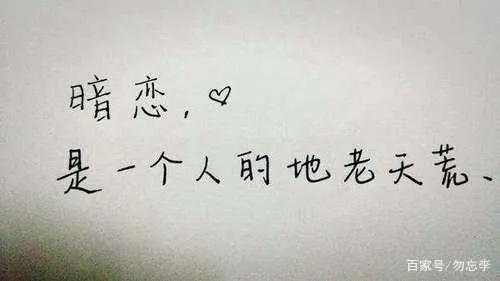 暗恋，♡
是一个人的地老天荒、
百家号/勿忘李